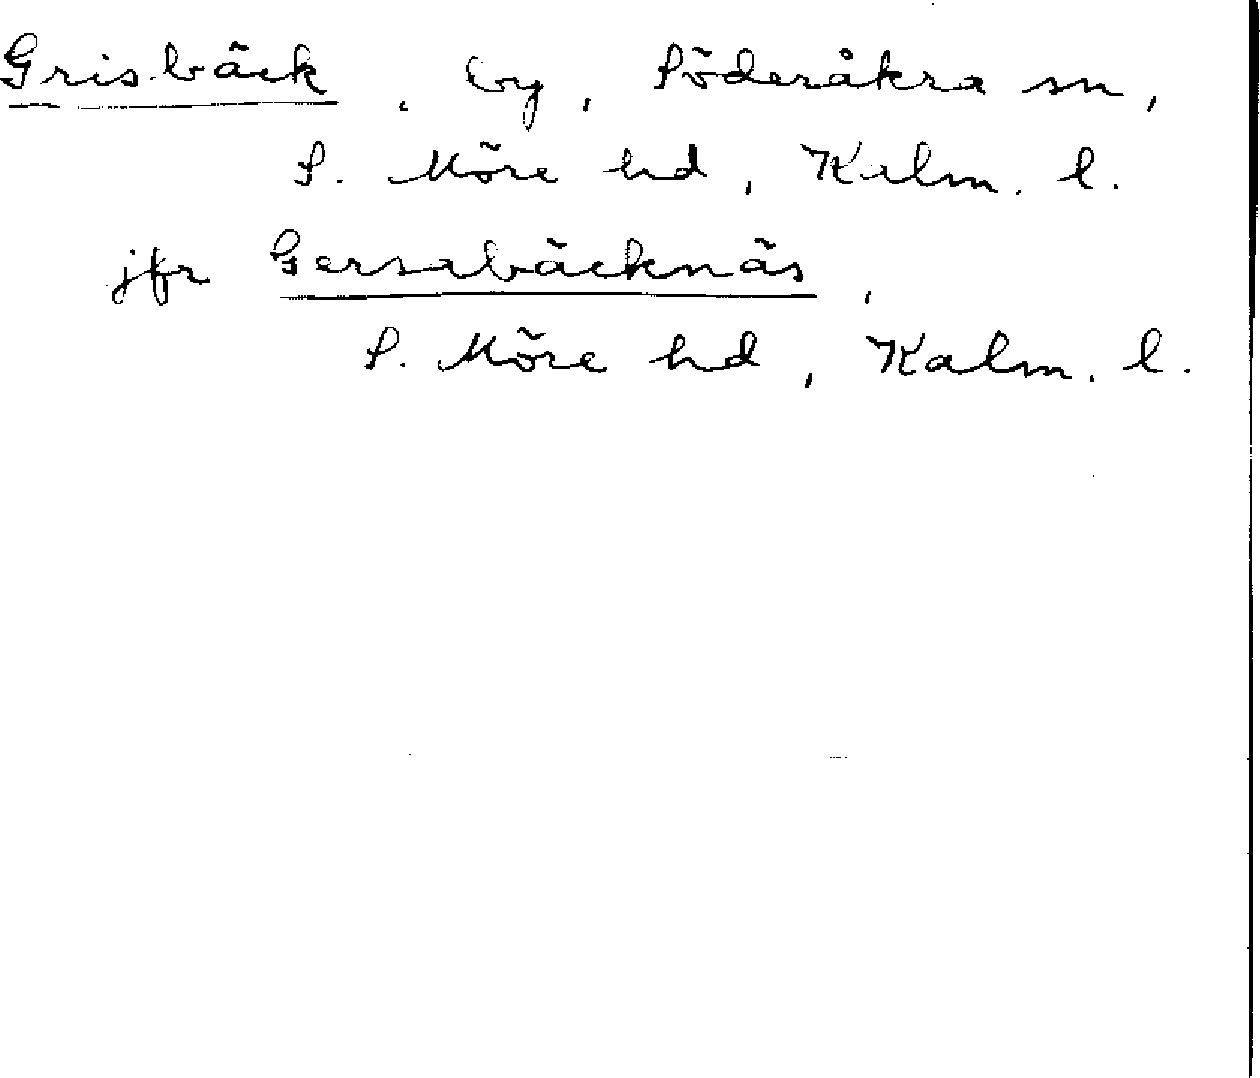 Grisbäck, by, Söderåkra sn,
S. Möre hd, Kalm. l.
jfr Gersabäcknäs,
S. Möre hd, Kalm. l.